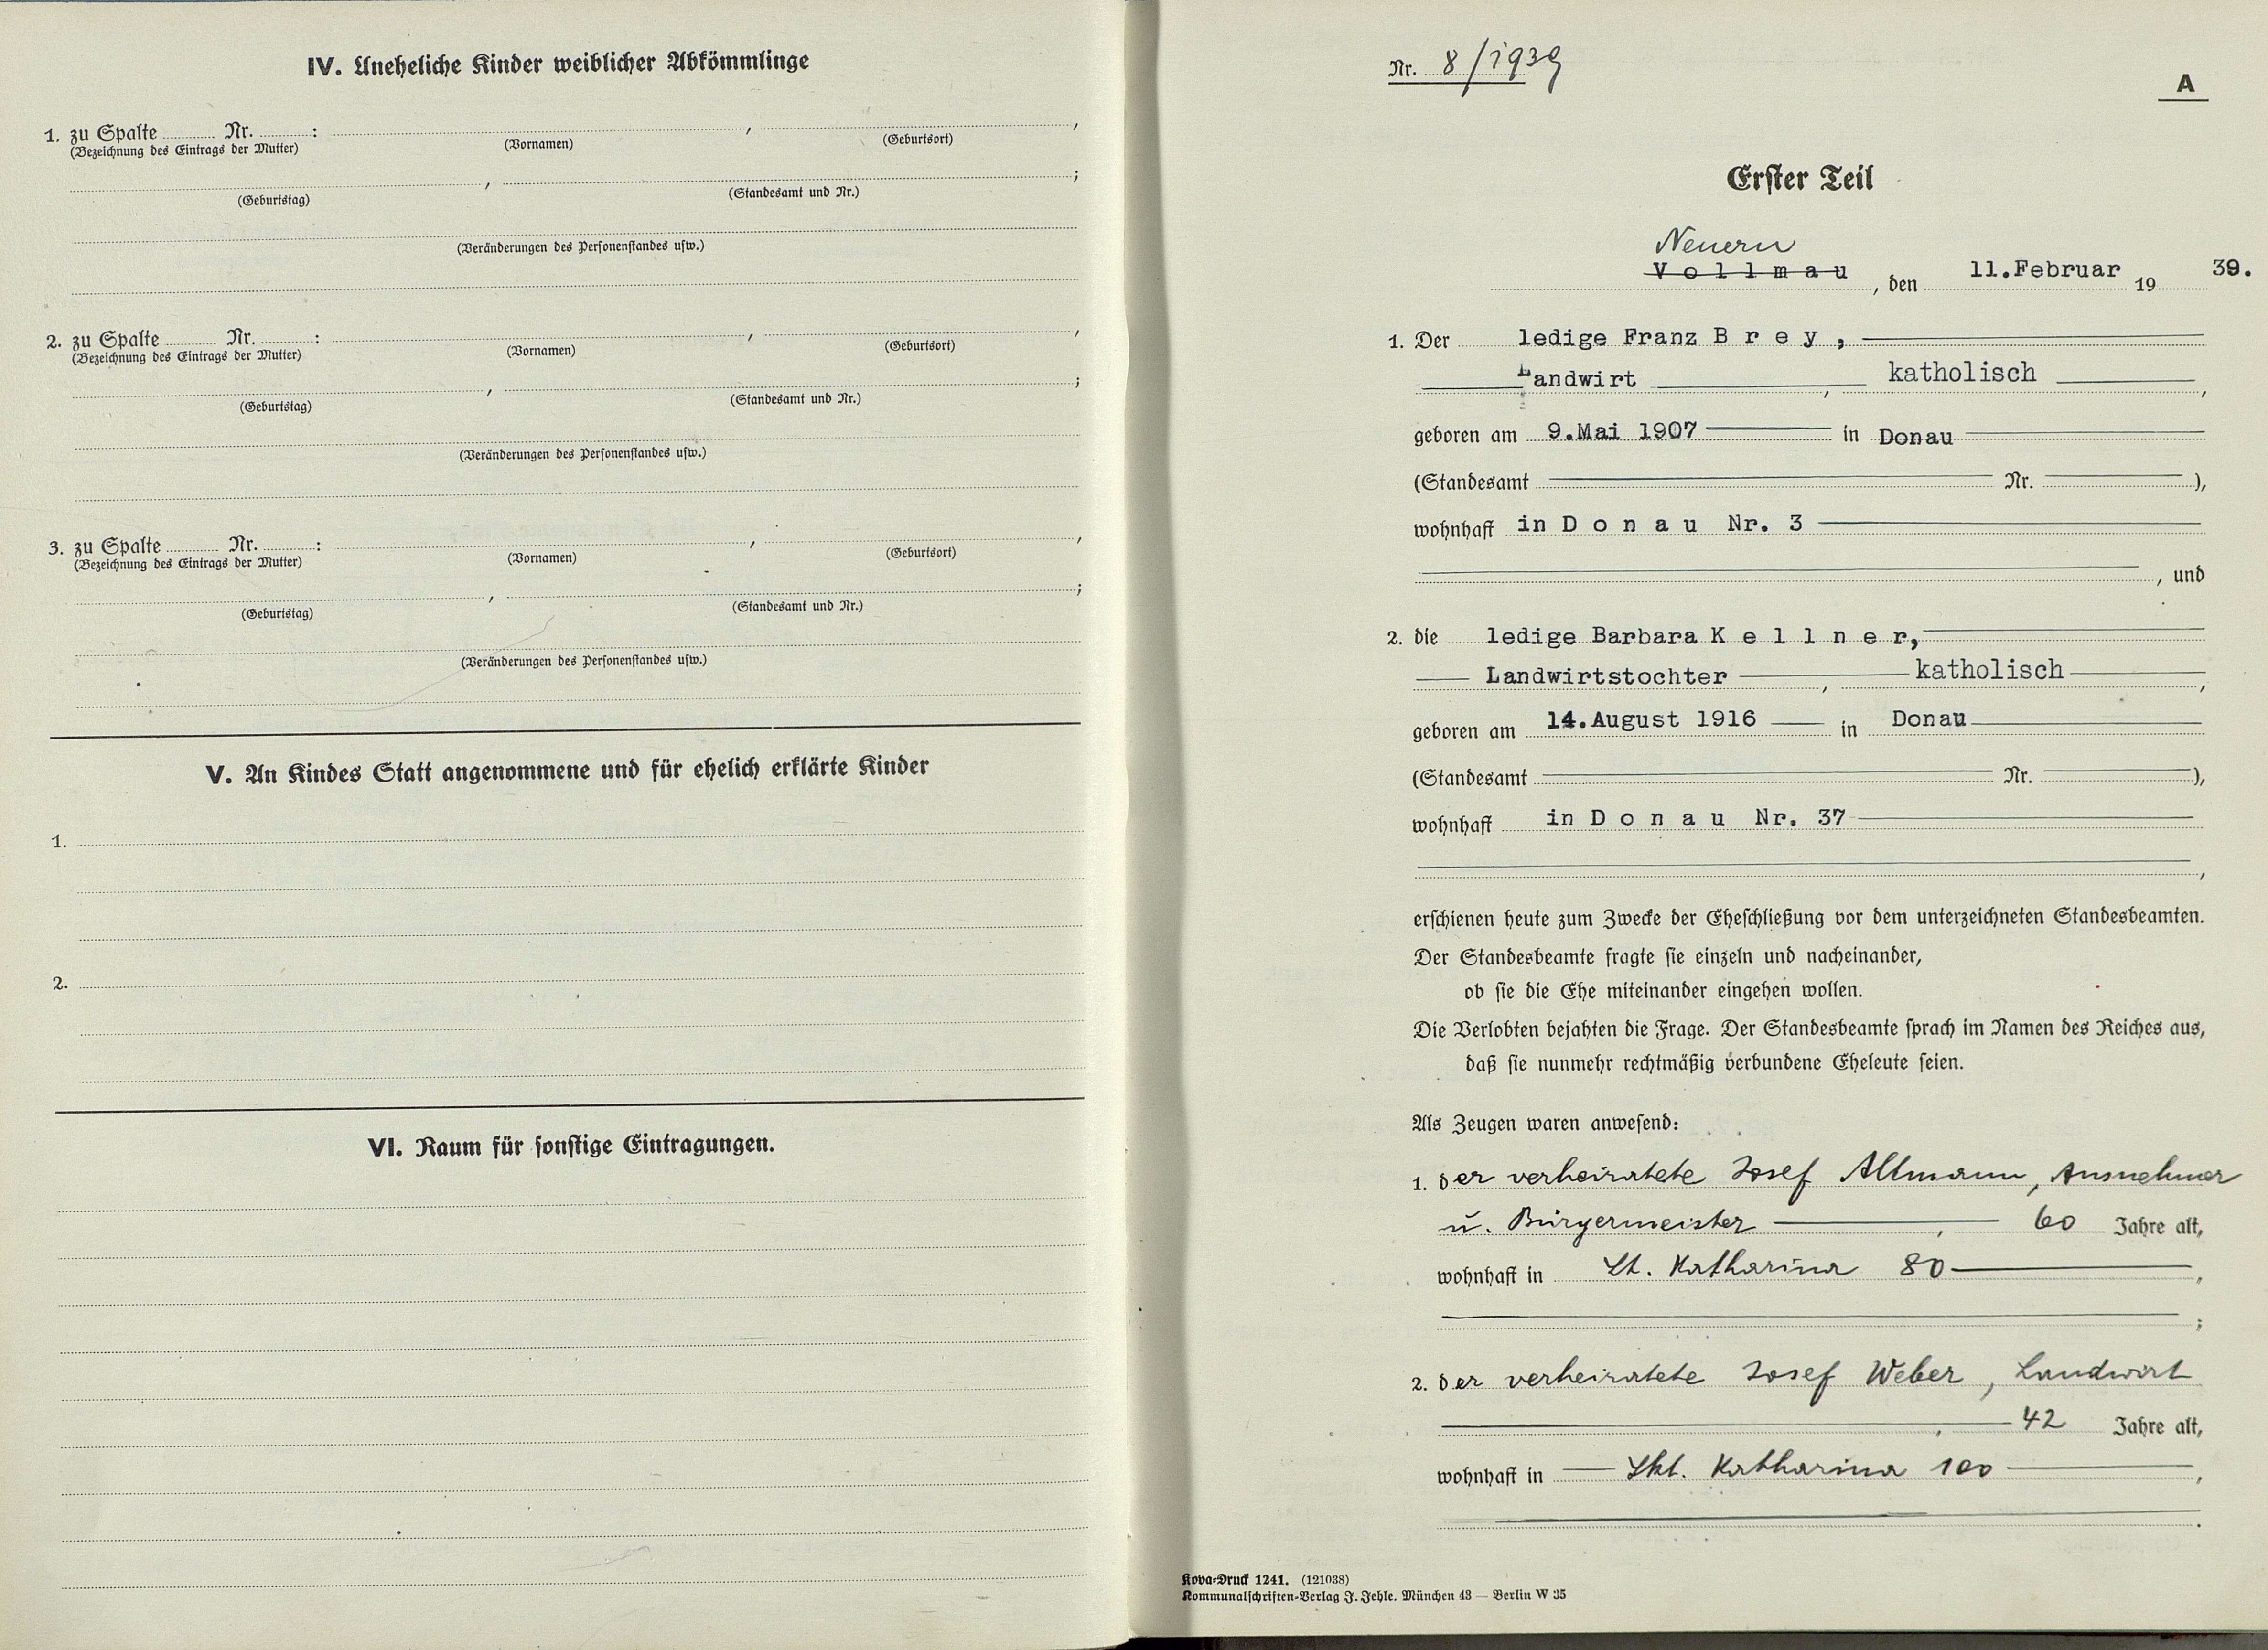 IV. Uneheliche Kinder weiblicher Abkömmlinge
1. zu Spalte Nr. : , ,
(Bezeichnung des Eintrags der Mutter) (Vornamen) (Geburtsort)
, ;
(Geburtstag) (Standesamt und Nr.)
(Veränderungen des Personenstandes usw.)
2. zu Spalte Nr. : , ,
(Bezeichnung des Eintrags der Mutter) (Vornamen) (Geburtsort)
, ;
(Geburtstag) (Standesamt und Nr.)
(Veränderungen des Personenstandes usw.)
3. zu Spalte Nr. : , ,
(Bezeichnung des Eintrags der Mutter) (Vornamen) (Geburtsort)
, ;
(Geburtstag) (Standesamt und Nr.)
(Veränderungen des Personenstandes usw.)
V. An Kindes Statt angenommene und für ehelich erklärte Kinder
1.
2.
VI. Raum für sonstige Eintragungen.
Nr. 8/1939
A
Erster Teil
Neuern
Vollmau, den 11.Februar 19 39.
1. Der ledige Franz B r e y ,
Landwirt , katholisch ,
geboren am 9.Mai 1907 in Donau
(Standesamt Nr. ),
wohnhaft in D o n a u Nr. 3
, und
2. die ledige Barbara K e l l n e r,
Landwirtstochter , katholisch ,
geboren am 14.August 1916 in Donau
(Standesamt Nr. ),
wohnhaft in D o n a u Nr. 37
,
erschienen heute zum Zwecke der Eheschließung vor dem unterzeichneten Standesbeamten.
Der Standesbeamte fragte sie einzeln und nacheinander,
ob sie die Ehe miteinander eingehen wollen.
Die Verlobten bejahten die Frage. Der Standesbeamte sprach im Namen des Reiches aus,
daß sie nunmehr rechtmäßig verbundene Eheleute seien.
Als Zeugen waren anwesend:
1. der verheiratete Josef Altmann, Ausnehmer
u. Bürgermeister , 60 Jahre alt,
wohnhaft in St. Katharina 80 ,
;
2. der verheiratete Josef Weber, Landwirt
, 42 Jahre alt,
wohnhaft in Skt. Katharina 100 ,
.
Kova-Druck 1241. (121038)
Kommunalschriften-Verlag J. Jehle. München 43 — Berlin W 35